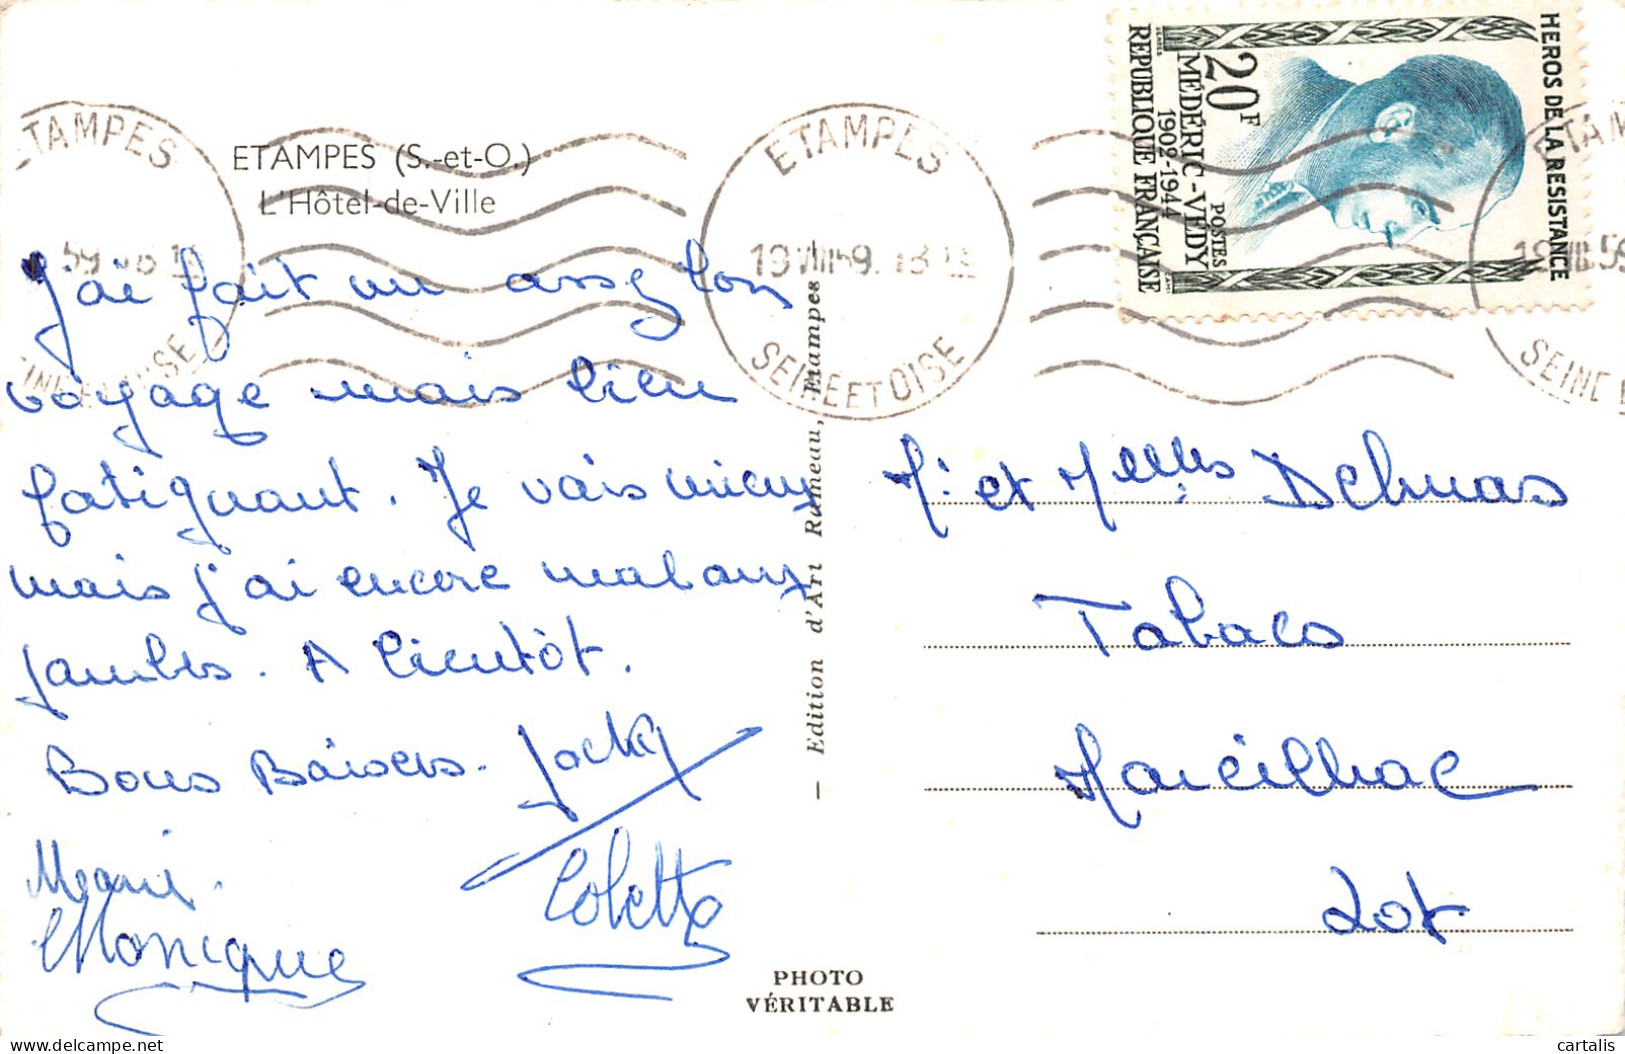 ETAMPES (S.-et-O.)
L'Hôtel-de-Ville
J'ai fait un assez bon
voyage mais bien
fatiguant. Je vais mieux
mais j'ai encore mal aux
jambes. A bientôt.
Bons Baisers. Jacky
Colette
Monique
PHOTO
VÉRITABLE
— Edition d'Art Rameau, Etampes
ETAMPES
19 VIII 59. 18
SEINE ET OISE
ETAMPES
SEINE ET OISE
HEROS DE LA RESISTANCE
20F
POSTES
MEDERIC-VEDY
1909-1944
REPUBLIQUE FRANÇAISE
M. et Melles Delmas
Tabacs
Marcilhac
Lot
cartalis